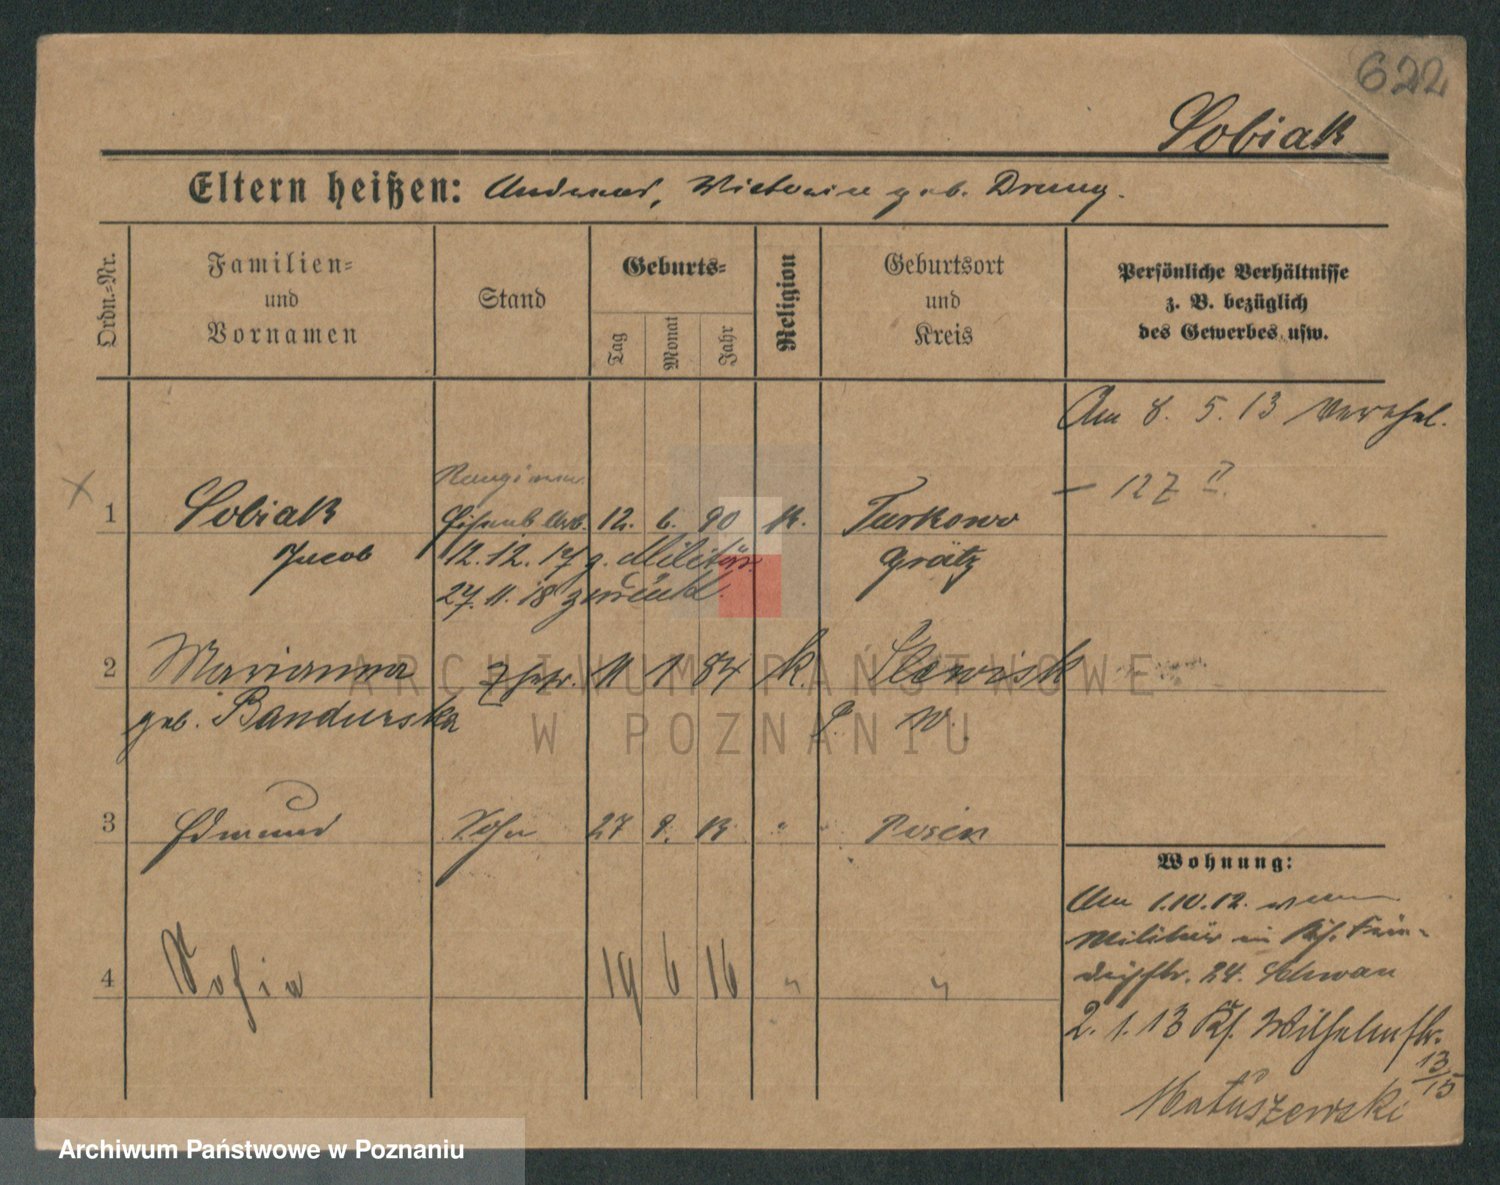 622
Sobiak
Eltern heißen: Andreas, Victoria geb. Drung.
Ordn.-Nr.
Familien-
und
Vornamen
Stand
Geburts-
Tag
Monat
Jahr
Religion
Geburtsort
und
Kreis
Persönliche Verhältnisse
z. B. bezüglich
des Gewerbes usw.
Am 8. 5. 13 verehel.
127 II
1 Sobiak Eisenb. Arb. 12. 6. 90 k. Turkowo
Jacob 12.12.17 z. Militär Grätz
27.11.18 zurück
2 Marianna 11 1 84 k. Slawisk
geb. Bandurska W.
3 Edmund Sohn 27 9. 13 " Posen
4 Sofia 19 6 16 " "
Wohnung:
Am 1.10.12. vom
Militär in
24. Schwan
2. 1. 13 Ks. Wilhelmstr.
13/15
Matuszewski
ARCHIWUM PAŃSTWOWE
W POZNANIU
Archiwum Państwowe w Poznaniu